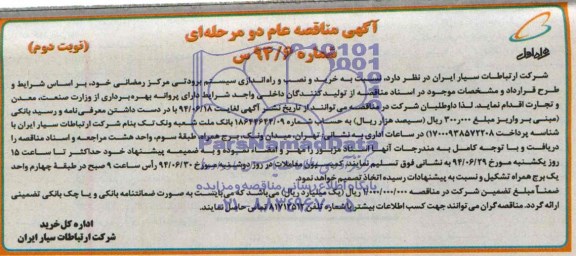 آگهی مناقصه عام دو مرحله‌ای
شماره ۹۴/۶ س
(نوبت دوم)
همراه اول
شرکت ارتباطات سیار ایران در نظر دارد، نسبت به خرید و نصب و راه‌اندازی سیستم برودتی مرکز رمضانی خود، بر اساس شرایط و
طرح قرارداد و مشخصات موجود در اسناد مناقصه از تولید کنندگان داخلی واجد شرایط دارای پروانه بهره‌برداری از وزارت صنعت، معدن
و تجارت اقدام نماید. لذا داوطلبان شرکت در مناقصه می توانند از تاریخ نشر آگهی لغایت ۹۴/۰۶/۱۸ با در دست داشتن معرفی نامه و رسید بانکی
(مبنی بر واریز مبلغ ۳۰۰/۰۰۰ ریال (سیصد هزار ریال) به حساب بانک ملت شعبه ونک تک بنام شرکت ارتباطات سیار ایران با
شناسه پرداخت در ساعات اداری به نشانی تهران، میدان ونک، برج همراه، طبقه سوم، واحد هشت مراجعه، اسناد مناقصه را
دریافت و با توجه کامل به مندرجات آنها اسناد را به ضمیمه پیشنهاد خود حداکثر تا ساعت ۱۵
روز یکشنبه مورخ ۹۴/۰۶/۲۹ به نشانی فوق تسلیم نمایند. کمیسیون معاملات در روز دوشنبه مورخ ۹۴/۰۶/۳۰ رأس ساعت ۹ صبح در طبقه چهارم واحد
یک برج همراه تشکیل و نسبت به پیشنهادات رسیده اتخاذ تصمیم خواهد نمود.
ضمناً مبلغ تضمین شرکت در مناقصه ۱/۰۰۰/۰۰۰/۰۰۰ ریال (یک میلیارد ریال) می‌باشد که می بایست به صورت ضمانتنامه بانکی و یا چک بانکی تضمینی
ارائه گردد. مناقصه گران می توانند جهت کسب اطلاعات بیشتر با شماره تلفن تماس حاصل نمایند.
اداره کل خرید
شرکت ارتباطات سیار ایران
ParsNamadData
پایگاه اطلاع رسانی مناقصه و مزایده